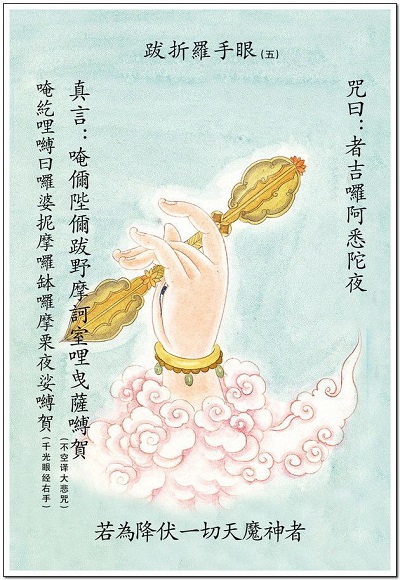 跋折羅手眼(五)
咒曰：者吉囉阿悉陀夜
真言：唵儞陛儞跋野摩訶室哩曳薩嚩賀(不空译大悲咒)
唵紇哩嚩曰囉婆抳摩囉缽囉摩栗夜娑嚩賀(千光眼经右手)
若為降伏一切天魔神者